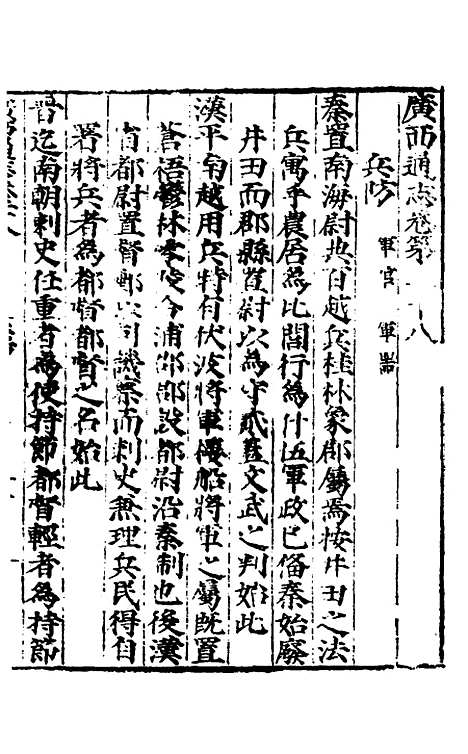 廣西通志卷第 十八
兵防 軍官 軍器
秦置南海尉典百越兵桂林象郡屬焉按井田之法
兵寓乎農居為比閭行為什伍軍政已備秦始廢
井田而郡縣置尉以為守貳蓋文武之判始此
漢平南越用兵特有伏波將軍樓船將軍之屬既置
蒼梧鬱林交阯合浦郡郡設都尉沿秦制也後漢
省都尉置督郵以司譏察而刺史兼理兵民得自
署將兵者為都督都督之名始此
晉迄南朝刺史任重者為使持節都督輕者為持節